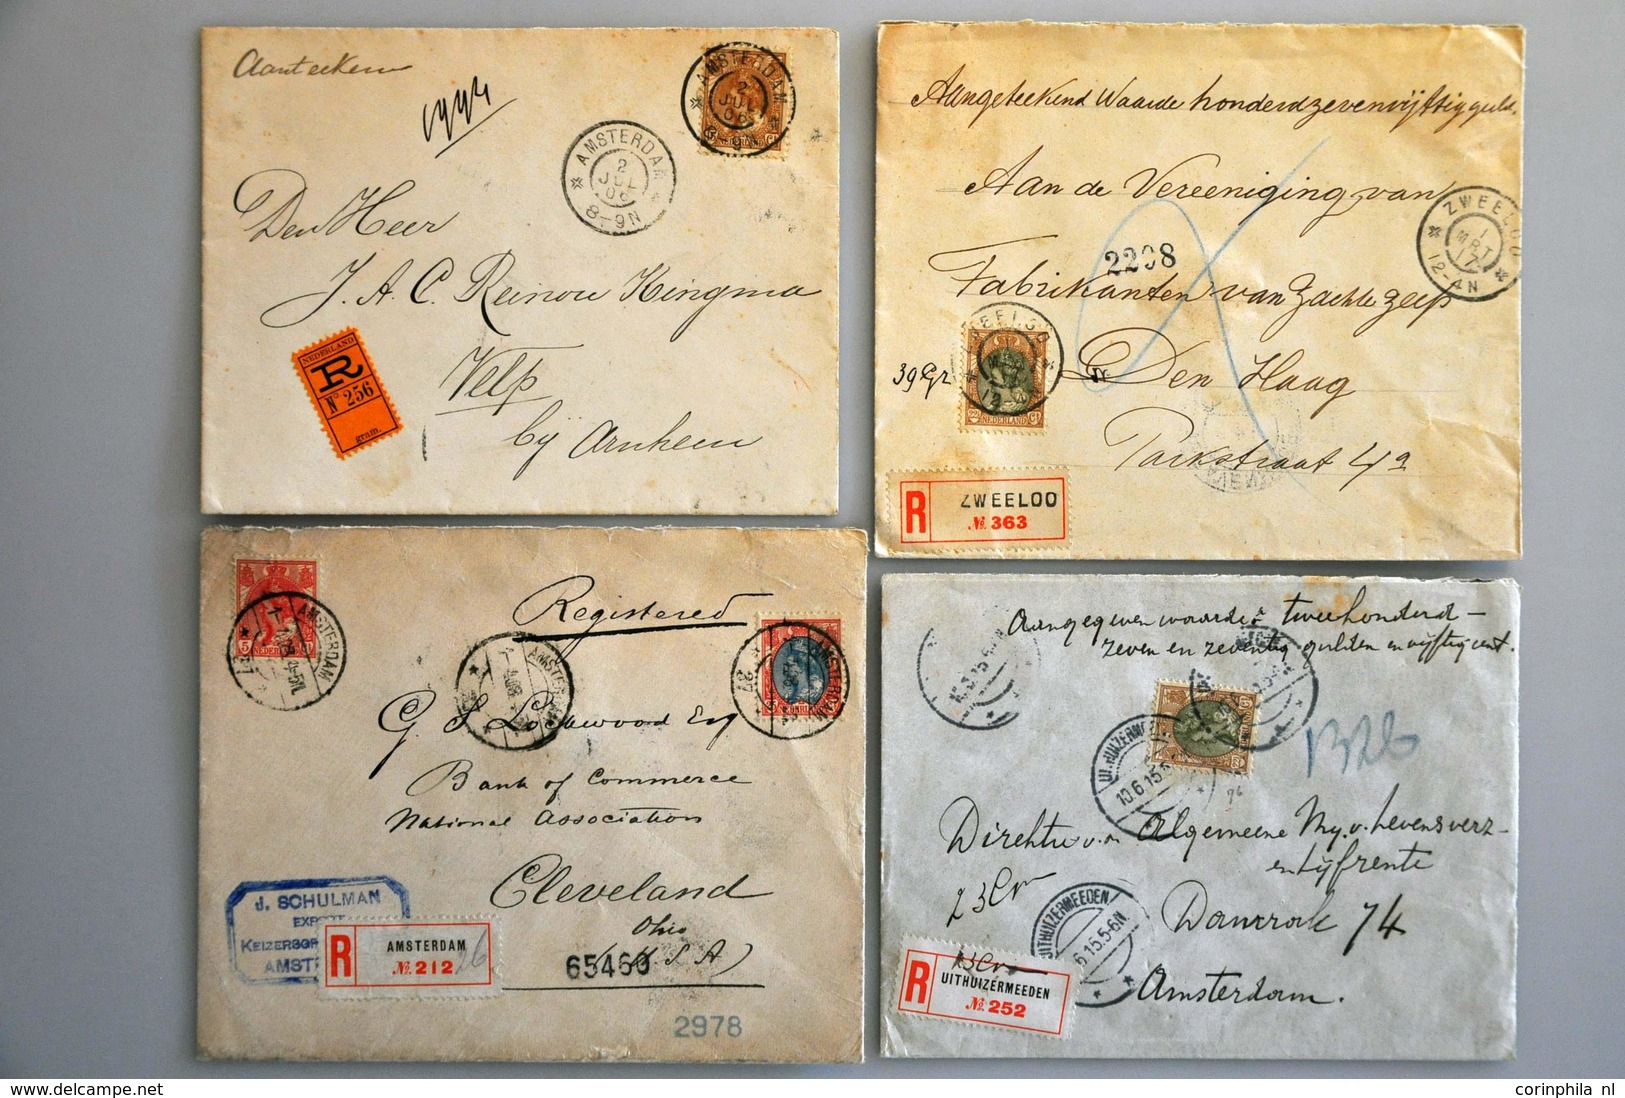 Aanteekenen
AMSTERDAM
2
JUL
06
8-9N
AMSTERDAM
2
JUL
06
8-9N
Den Heer
J. A. C. Reinou Kingma
Velp
bij Arnhem
NEDERLAND
R
No 256
gram.
Aangeteekend Waarde honderdzevenvijftig guld.
Aan de Vereeniging van
Fabrikanten van Zachte zeep
Den Haag
Parkstraat 4a
2298
ZWEELOO
1
MRT
17
12-4N
39 Gr
22½ Ct
NEDERLAND
R
ZWEELOO
No. 363
Registered
AMSTERDAM
AMSTERDAM
AMSTERDAM
5
G S Lockwood Esq
Bank of Commerce
National Association
Cleveland
Ohio
(U S A)
J. SCHULMAN
AMST
R
AMSTERDAM
No. 212
65460
2978
Aangegeven waarde tweehonderd-
zeven en zeventig gulden en vijftig cent.
1326
UITHUIZERMEEDEN
10.6.15.5
Direktie v.a. Algemeene My. v. Levensverz-
en Lijfrente
Damrak 74
Amsterdam.
23 Gr
UITHUIZERMEEDEN
6.15.5-6N
R
UITHUIZERMEEDEN
No. 252
corinphila nl